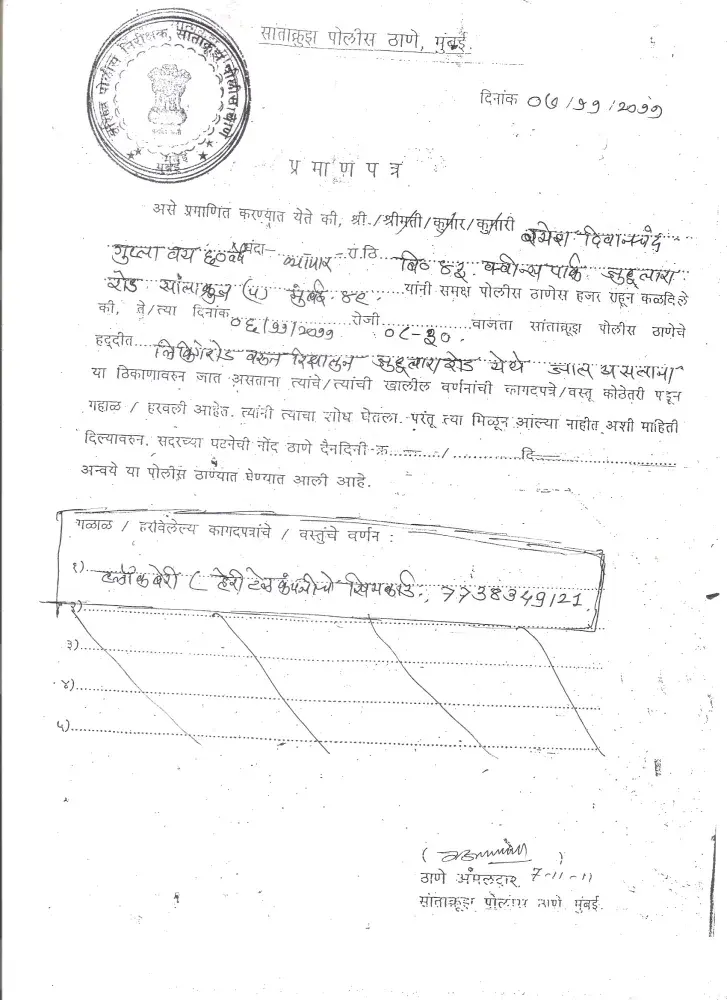 सांताक्रुझ पोलीस ठाणे, मुंबई.
वरिष्ठ पोलीस निरीक्षक, सांताक्रुझ पोलीस ठाणे
मुंबई
दिनांक ०७/११/२०११
प्रमाणपत्र
असे प्रमाणित करण्यात येते की, श्री./श्रीमती/कुमार/कुमारी रमेश दिवानचंद
गुप्ता वय ६० वर्षे धंदा- व्यापार रा.ठि. बि ४२, क्वीन्स पार्क जुहूतारा
रोड सांताक्रुझ (प) मुंबई. ४९. यांनी समक्ष पोलीस ठाणेस हजर राहून कळविले
की, ते/त्या दिनांक ०६/११/२०११ रोजी ०८-३० वाजता सांताक्रुझ पोलीस ठाणेचे
हद्दीत लिंकिंगरोड वरुन रिक्षातुन जुहूतारारोड येथे जात असताना
या ठिकाणावरुन जात असताना त्यांचे/त्यांची खालील वर्णनांची कागदपत्रे/वस्तू कोठेतरी पडून
गहाळ / हरवली आहेत. त्यांनी त्याचा शोध घेतला. परंतू त्या मिळून आल्या नाहीत अशी माहिती
दिल्यावरुन. सदरच्या घटनेची नोंद ठाणे दैनदिनी क्र......../........दि........
अन्वये या पोलीस ठाण्यात घेण्यात आली आहे.
गळाळ / हरविलेल्य कागदपत्रांचे / वस्तुंचे वर्णन :
१) ब्लॅकबेरी ( कंपनीचे सिमकार्ड. 7738349121.
२)
३)
४)
५)
ठाणे अंमलदार 7-11-11
सांताक्रुझ पोलीस ठाणे मुंबई.